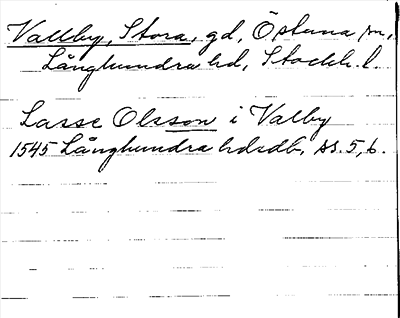 Vallby, Stora, gd, Östuna sn,
Långhundra hd, Stockh. l.
Lasse Olsson i Valby
1545 Långhundra hdsdb, ss. 5, 6.